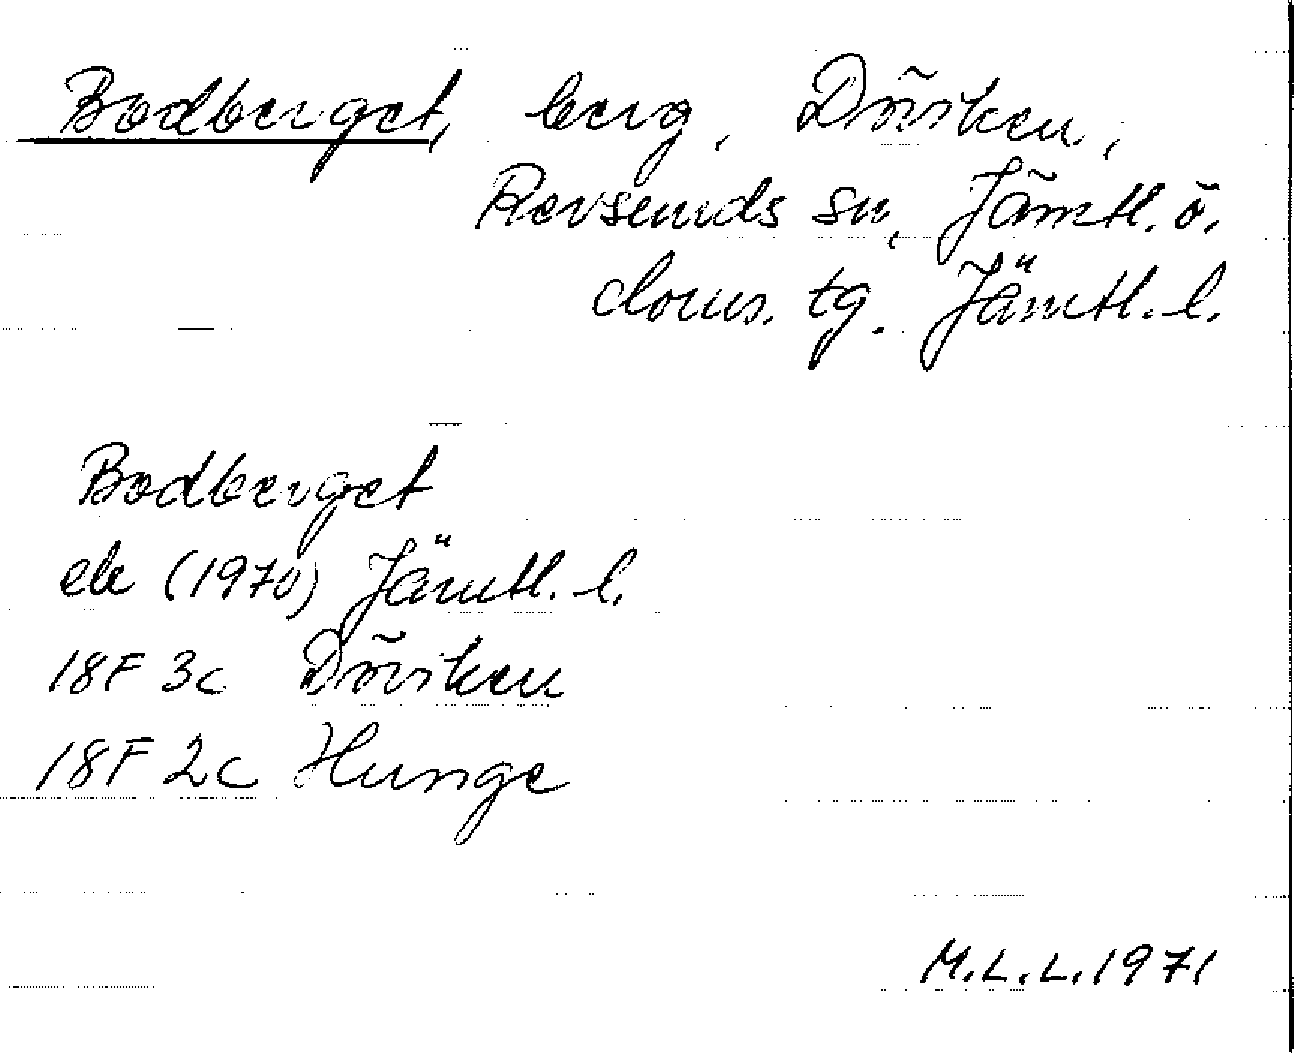 Bodberget, berg, Döviken,
Revsunds sn, Jämtl. ö.
doms. tg. Jämtl. l.
Bodberget
ek (1970) Jämtl. l.
18F 3c Döviken
18F 2c Hunge
M.L.L. 1971